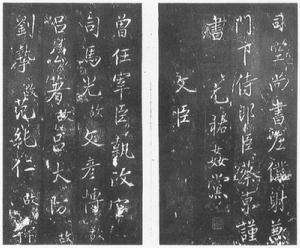 司空尚書左僕射兼
門下侍郎臣蔡京謹
書　元祐姦黨
文臣
曾任宰臣執政官
司馬光故　文彥博故
呂公著故　呂大防故
劉摯故　范純仁故　韓